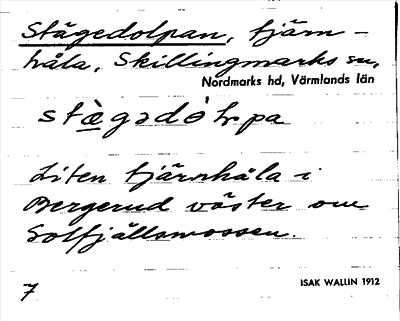 Stägedolpan, tjärn-
håla, Skillingmarks sn,
Nordmarks hd, Värmlands län
stè̱gədòƚpa
Liten tjärnhåla i
Bergerud väster om
Solfjällsmossen.
7
ISAK WALLIN 1912